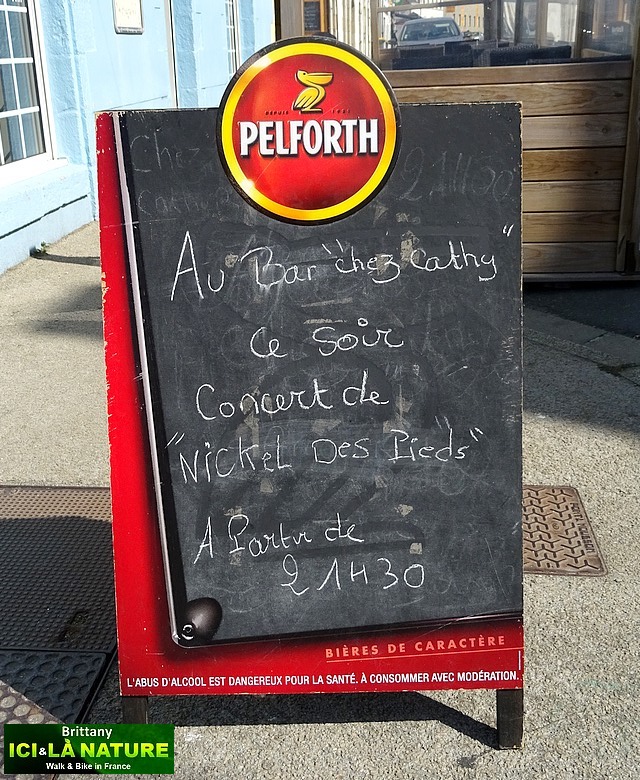 DEPUIS
PELFORTH
Chez
21H00
Au Bar "chez Cathy"
Ce Soir
Concert de
"NickeL Des Pieds"
A Partir de
21H30
BIÈRES DE CARACTÈRE
L'ABUS D'ALCOOL EST DANGEREUX POUR LA SANTÉ. À CONSOMMER AVEC MODÉRATION.
Brittany
ICI & LÀ NATURE
Walk & Bike in France